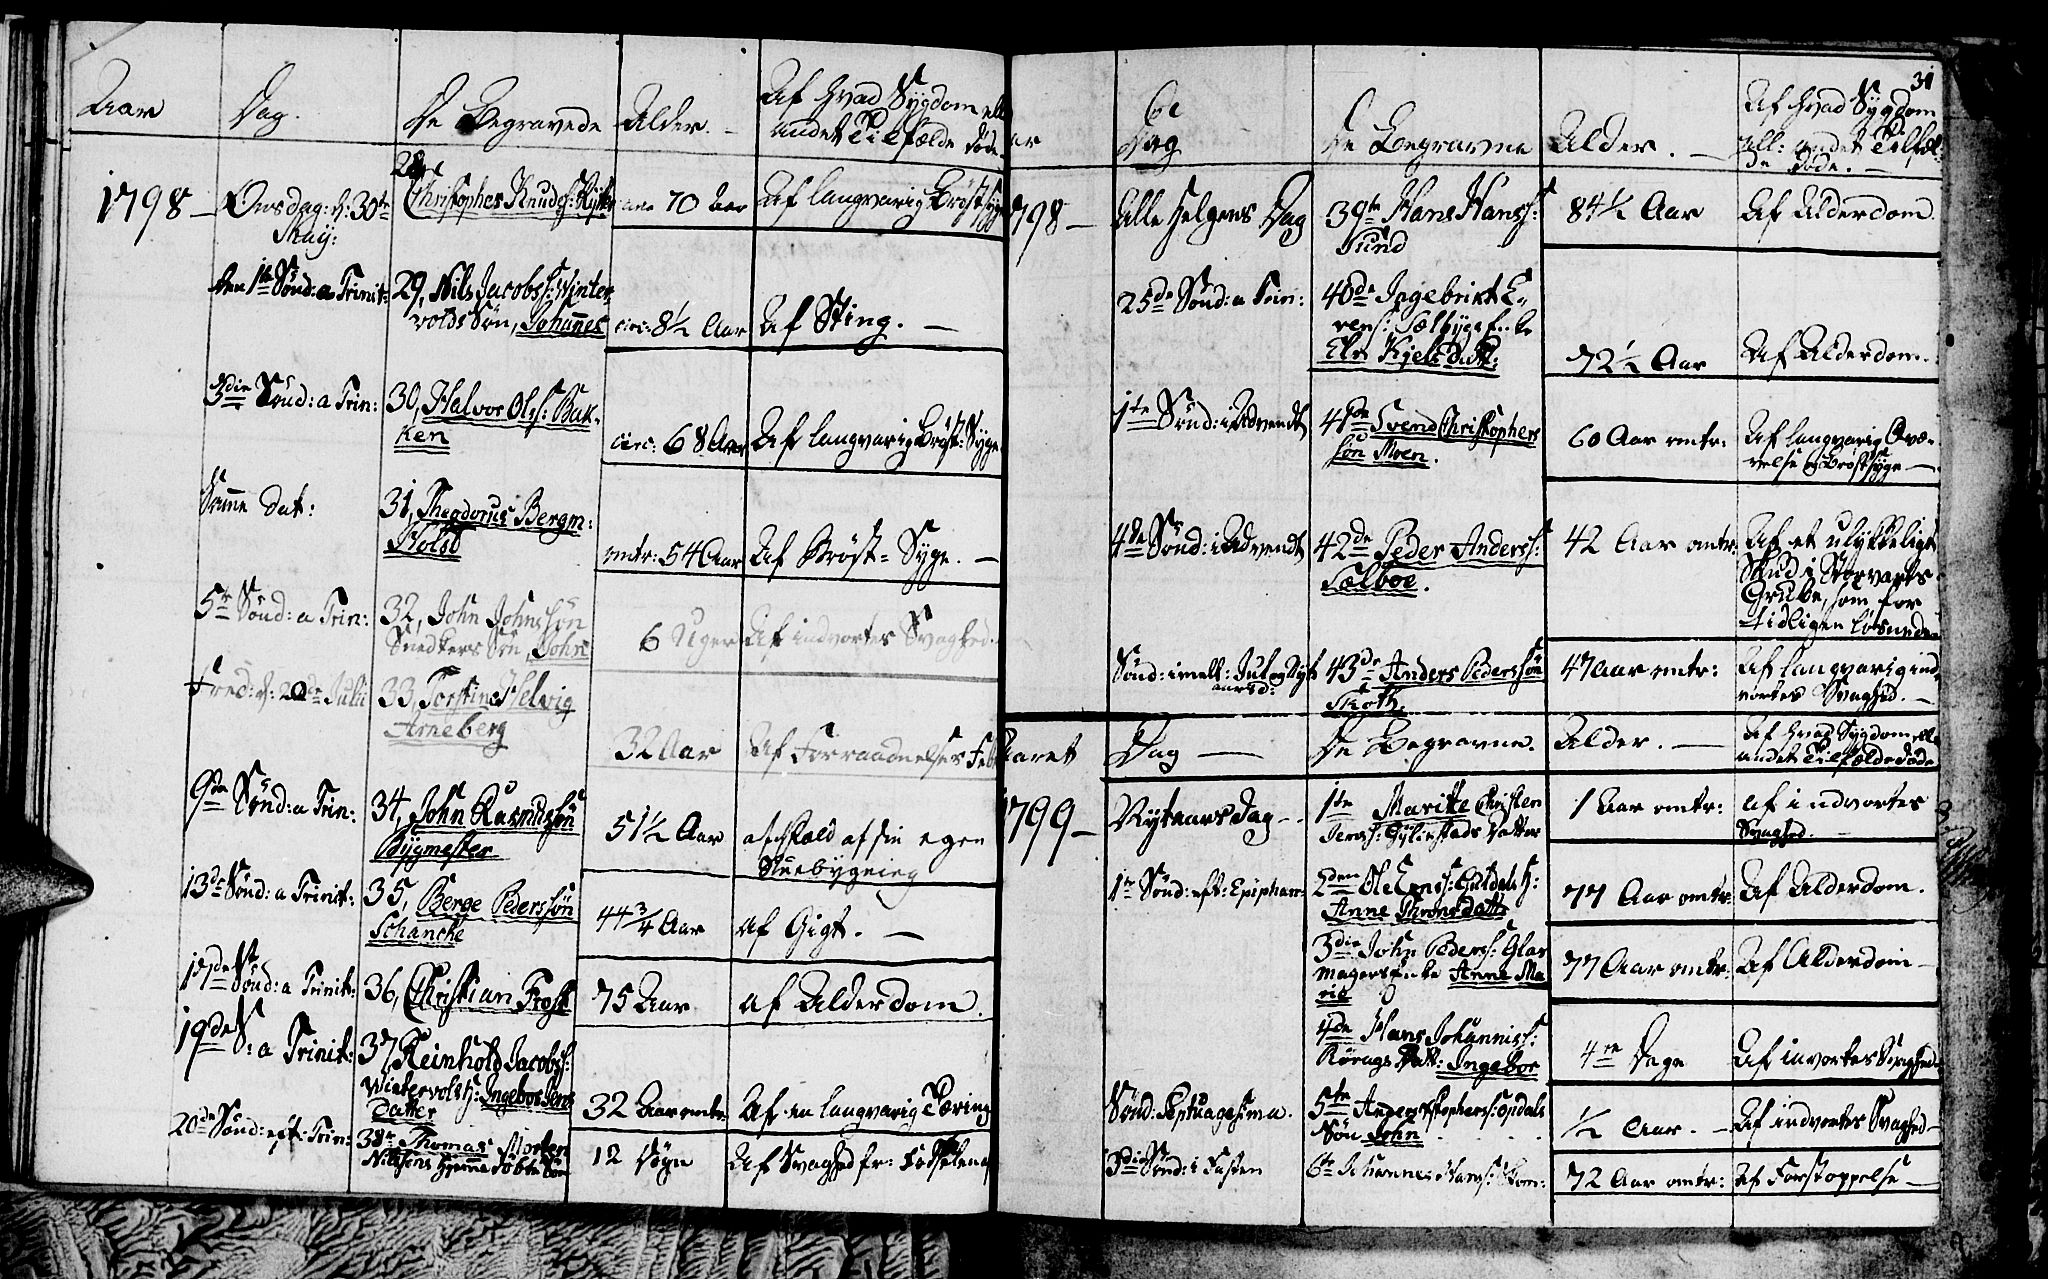 Aar
Dag.
De Begravede
Alder. -
Af hvad Sygdom ell
andet Tilfælde døde.
1798 - Onsdag: d: 30te
May:
28
Christopher Knuds:
70 Aar
Af langvarig Brøstsyge
den 1te Sønd: a Trinit:
29, Nils Jacobs: Winter-
volds Søn, Johannes
circ: 8½ Aar
Af Sting. -
3die Sønd: a Trin:
30, Halvor Ols: Bak-
ken
circ: 68 Aar
Af langvarig Brøst: Syge
Samme Dat:
31, Theodorus Bergm:
Holst
omtr: 54 Aar
Af Brøst= Syge. -
5te Sønd: a Trin:
32, John Johnssøn
Snedkers Søn, John
6 Uger
Af indvortes Svaghed.
Fred: d: 20de Julii
33, Torstine Helvig
Arneberg
32 Aar
Af Forraadnelses Feb
9de Sønd: a Trin:
34, John Rasmussøn
Bygmester
51½ Aar
af Skold af sin egen
Stuebygning
13de Sønd: a Trinit:
35, Berge Pederssøn
Schancke
44¾ Aar
af Gigt. -
17de Sønd: a Trinit:
36, Christian Frost
75 Aar
af Alderdom.
19de S: a Trinit:
37, Reinhold Jacobs:
Wintervolds H: Ingebor Jens
Datter
32 Aar omtr
Af en langvarig Tæring
20de Sønd: eft: Trin:
38te Thomas Morten
Nilssens hjemme døbte Søn
12 Døgn
Af Svaghed fr: Fødselen af
31
Dag
De Begravne
Alder. -
Af hvad Sygdom
ell: andet Tilfæl-
de døde. -
798 - Alle Helgens Dag
39te Hans Hans:
Sund
84½ Aar
Af Alderdom.
25de Sønd: a Trin:
40de Ingebrikt E-
vens: Sælbyge
Eli Kjels Datt:
72½ Aar
Af Alderdom.
1te Sønd: i Advendt
41de Svend Christophers
søn Moen.
60 Aar omtr:
Af langvarig
velse og Brøstsyge -
4de Sønd: i Advendt
42de Peder Anderss:
Sælboe.
42 Aar omtr:
Af et ulykkeligt
Skud i Storvarts
Grube, som for
tidligen løsnede
Sønd: imell: Jul og Nyt
aarsd:
43de Anders Pederssøn
Skoth.
47 Aar omtr:
Af langvarig ind
vortes Svaghed. -
Aaret
Dag -
De Begravne.
Alder. -
Af hvad Sygdom ell
andet Tilfælde døde
1799 - Nytaarsdag -
1te Marite Christen
Jens: Gylsestads Datter
1 Aar omtr:
af indvortes
Svaghed. -
1te Sønd: eft: Epiphan:
2den Ole Enss: Guldals H:
Anne Throns datt:
77 Aar omtr:
Af Alderdom.
3die John Peders: Glar
magers Enke Anne Ma
rie
77 Aar omtr:
Af Alderdom -
4de Hans Johanniss:
Røraas Datt: Ingebor
4re Dage
Af invortes Svaghed
Sønd: Septuagesima.
5te Anders stophers: Opdals
Søn John
½ Aar. -
Af indvortes Svaghed -
3die Sønd: i Fasten
6te Johannes Hans:
72 Aar omtr:
Af Forstoppelse -